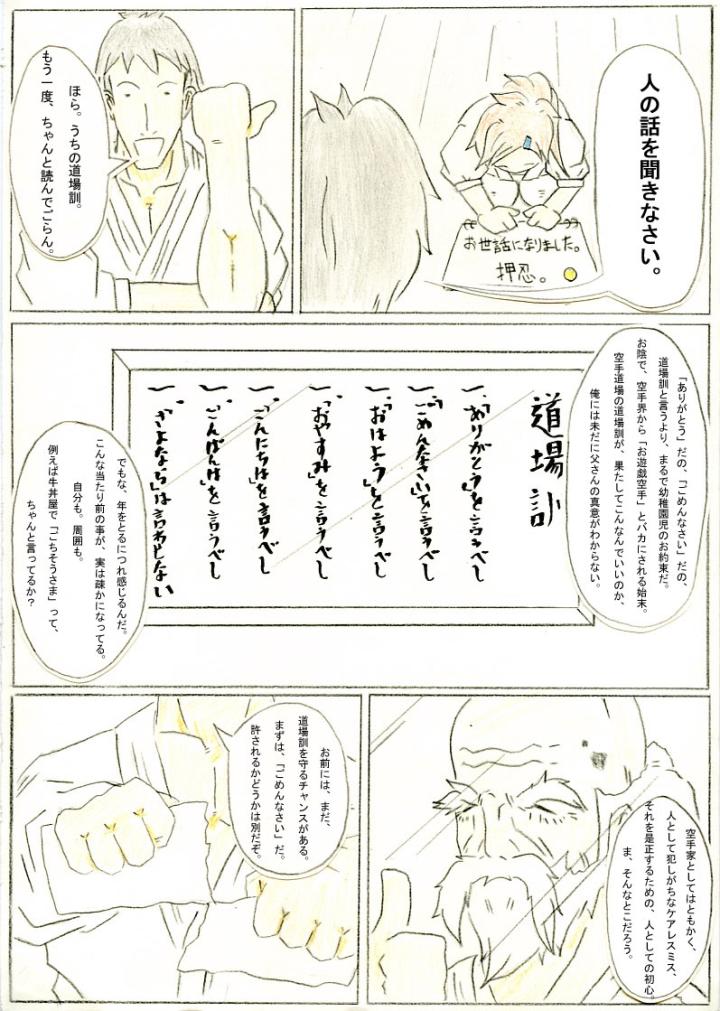 人の話を聞きなさい。
お世話になりました。
押忍。
ほら。うちの道場訓。
もう一度、ちゃんと読んでごらん。
「ありがとう」だの、「ごめんなさい」だの、
道場訓と言うより、まるで幼稚園児のお約束だ。
お陰で、空手界から「お遊戯空手」とバカにされる始末。
空手道場の道場訓が、果たしてこんなんでいいのか、
俺には未だに父さんの真意がわからない。
道場訓
一、「ありがとう」を言うべし
一、「ごめんなさい」を言うべし
一、「おはよう」を言うべし
一、「おやすみ」を言うべし
一、「こんにちは」を言うべし
一、「こんばんは」を言うべし
一、「さよなら」は言わせない
でもな、年をとるにつれ感じるんだ。
こんな当たり前の事が、実は疎かになってる。
自分も。周囲も。
例えば牛丼屋で「ごちそうさま」って、
ちゃんと言ってるか?
空手家としてはともかく、
人として犯しがちなケアレスミス、
それを是正するための、人としての初心。
ま、そんなとこだろう。
お前には、まだ、
道場訓を守るチャンスがある。
まずは、「ごめんなさい」だ。
許されるかどうかは別だぞ。